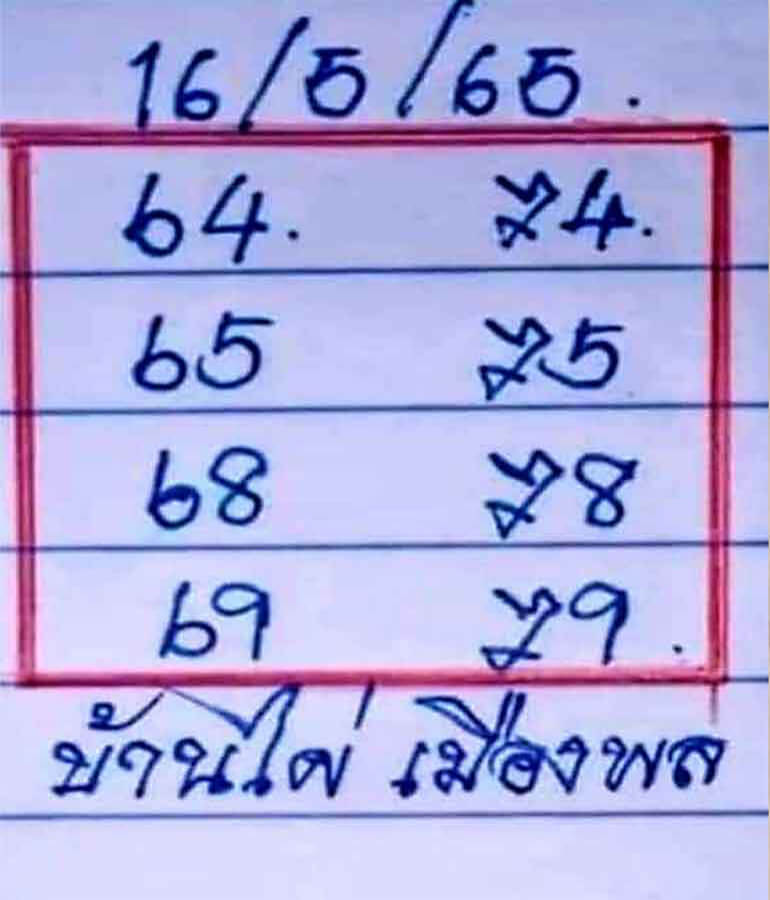 16/5/65.
64. 74.
65 75
68 78
69 79.
บ้านไผ่ เมืองพล